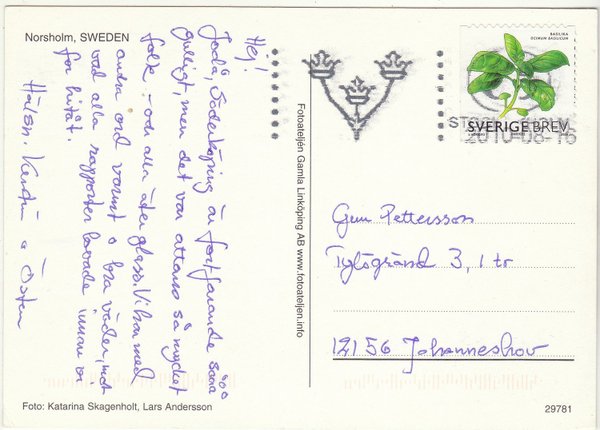 Norsholm, SWEDEN
Hej!
Jodå, Söderköping är fortfarande såå
gulligt, men det var attans så mycket
folk - och alla äter glass. Vi har med
andra ord varmt o bra väder, mot
vad alla rapporter lovade innan vi
for hitåt.
Hälsn. Kerstin o Östen
Fotoateljén Gamla Linköping AB www.fotoateljen.info
BASILIKA
OCIMUM BASILICUM
SVERIGE BREV
STOCKHOLM
2010-08-16
Gun Pettersson
Tylögränd 3, 1 tr
12156 Johanneshov
Foto: Katarina Skagenholt, Lars Andersson
29781